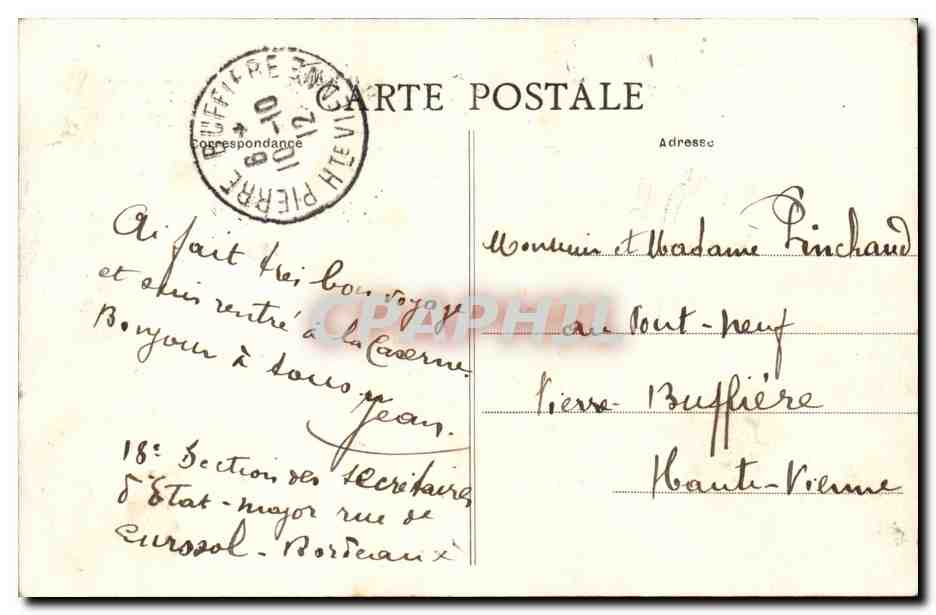 CARTE POSTALE
PIERRE BUFFIERE HTE VIENNE
*
8 -10
10 12
Correspondance
Adresse
Ai fait très bon voyage
et suis rentré à la Caserne.
Bonjour à tous.
Jean.
18e Section des secrétaires
d'Etat-major rue de
Cursol - Bordeaux
Monsieur et Madame Pinchaud
au Pont-neuf
Pierre-Buffière
Haute-Vienne
CPAPHIL